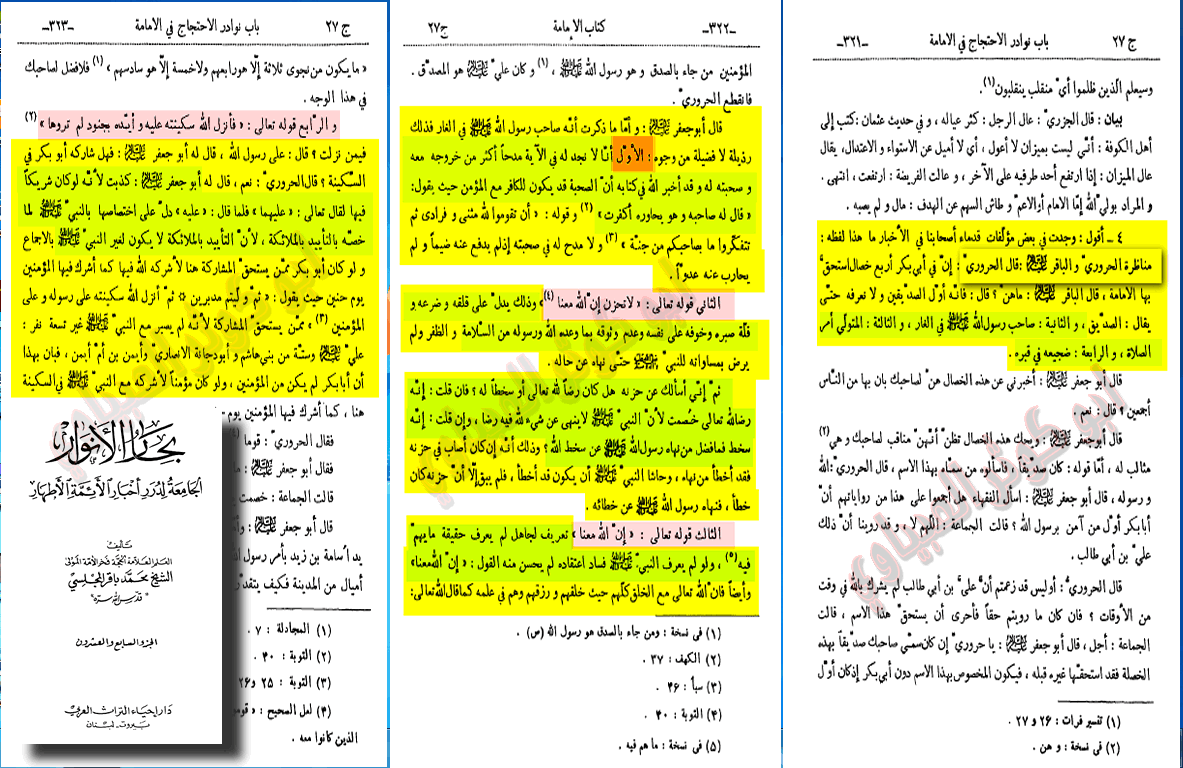 ج ٢٧ باب نوادر الاحتجاج في الامامة -٣٢١-
وسيعلم الّذين ظلموا أيّ منقلب ينقلبون (١).
بيان : قال الجزريّ : عال الرجل : كثر عياله ، و في حديث عثمان : كتب إلى
أهل الكوفة : أنّي ليست بميزان لا أعول ، أي لا أميل عن الاستواء و الاعتدال، يقال
عال الميزان : إذا ارتفع أحد طرفيه على الآخر ، و عالت الفريضة : ارتفعت ، انتهى .
و المراد بوليّ الله إمّا الامام أوالاعم و طاش السهم عن الهدف : مال و لم يصبه .
٤ ــ أقول : وجدت في بعض مؤلّفات قدماء أصحابنا في الأخبار ما هذا لفظه :
مناظرة الحروريّ و الباقر عليه السلام : قال الحروريّ : إنّ في أبي بكر أربع خصال استحقّ
بها الامامة ، قال الباقر عليه السلام : ماهنّ ؟ قال : فانّه أوّل الصدّيقين و لا نعرفه حتّى
يقال : الصدّيق ، و الثانية : صاحب رسول الله صلى الله عليه وآله في الغار ، و الثالثة : المتولّي أمر
الصلاة ، و الرابعة : ضجيعه في قبره .
قال أبو جعفر عليه السلام : أخبرني عن هذه الخصال هنّ لصاحبك بان بها من النّاس
أجمعين ؟ قال : نعم .
قال أبوجعفر عليه السلام : ويحك هذه الخصال تظنّ أنّهنّ مناقب لصاحبك و هي (٢)
مثالب له ، أمّا قوله : كان صدّيقاً ، فاسألوه من سمّاه بهذا الاسم ، قال الحروريّ : الله
و رسوله ، قال أبو جعفر عليه السلام : اسأل الفقهاء هل أجمعوا على هذا من رواياتهم أنّ
أبابكر أوّل من آمن برسول الله ؟ قالت الجماعة : اللّهم لا ، و قد روينا أنّ ذلك
عليّ بن أبي طالب .
قال الحروريّ : أوليس قد زعمتم أنّ عليّ بن أبي طالب لم يشرك بالله في وقت
من الأوقات ؟ فان كان ما رويتم حقاً فأحرى أن يستحقّ هذا الاسم ، قالت
الجماعة : أجل ، قال أبو جعفر عليه السلام : يا حروريّ إن كان سمّي صاحبك صدّيقاً بهذه
الخصلة فقد استحقّها غيره قبله ، فيكون المخصوص بهذا الاسم دون أبي بكر إذ كان أوّل
(١) تفسير فرات : ٢٦ و ٢٧ .
(٢) في نسخة : و هن .
-٣٢٢- كتاب الإمامة ج٢٧
المؤمنين من جاء بالصدق و هو رسول الله صلى الله عليه وآله ، (١) و كان عليّ هو المصدّق .
فانقطع الحروريّ .
قال أبوجعفر عليه السلام : و أمّا ما ذكرت أنّه صاحب رسول الله صلى الله عليه وآله في الغار فذلك
رذيلة لا فضيلة من وجوه : الأوّل : أنّا لا نجد له في الآية مدحاً أكثر من خروجه معه
و صحبته له و قد أخبر الله في كتابه أنّ الصحبة قد يكون للكافر مع المؤمن حيث يقول:
« قال له صاحبه و هو يحاوره أكفرت » (٢) و قوله : « أن تقوموا لله مثنى و فرادى ثم
تتفكّروا ما بصاحبكم من جنّة » (٣) و لا مدح له في صحبته إذ لم يدفع عنه ضيماً و لم
يحارب عنه عدوّاً .
الثاني قوله تعالى : « لا تحزن إنّ الله معنا (٤) » وذلك يدلّ على قلقه و ضرعه و
قلّة صبره وخوفه على نفسه وعدم وثوقه بما وعده الله ورسوله من السّلامة و الظفر ولم
يرض بمساواته للنبيّ صلى الله عليه وآله حتّى نهاه عن حاله .
ثمّ إنّي أسألك عن حزنه هل كان رضاً لله تعالى أو سخطاً له ؟ فان قلت : إنّه
رضا لله تعالى خُصمت لأنّ النبيّ صلى الله عليه وآله لاينهى عن شيء لله فيه رضا ، وإن قلت : إنّه
سخط فمافضل من نهاه رسول الله صلى الله عليه وآله عن سخط الله ؟ وذلك أنّه إن كان أصاب في حزنه
فقد أخطأ من نهاه ، وحاشا النبيّ صلى الله عليه وآله أن يكون قد أخطأ ، فلم يبق إلّا أنّ حزنه كان
خطأ ، فنهاه رسول الله صلى الله عليه وآله عن خطائه .
الثالث قوله تعالى : « إنّ الله معنا » تعريف لجاهل لم يعرف حقيقة ما يهمّ
فيه (٥) ، ولو لم يعرف النبيّ صلى الله عليه وآله فساد اعتقاده لم يحسن منه القول : « إنّ الله معنا »
وأيضاً فانّ الله تعالى مع الخلق كلّهم حيث خلقهم و رزقهم وهم في علمه كماقال الله تعالى:
(١) في نسخة : ومن جاء بالصدق هو رسول الله (ص) .
(٢) الكهف : ٣٧ .
(٣) سبأ : ٤٦ .
(٤) التوبة : ٤٠ .
(٥) في نسخة : ما هم فيه .
ج ٢٧ باب نوادر الاحتجاج في الامامة -٣٢٣-
« ما يكون من نجوى ثلاثة إلّا هو رابعهم ولاخمسة إلّا هو سادسهم » (١) فلافضل لصاحبك
في هذا الوجه .
و الرّابع قوله تعالى : « فأنزل الله سكينته عليه و أيّده بجنود لم تروها » (٢)
فيمن نزلت ؟ قال : على رسول الله ، قال له أبو جعفر عليه السلام : فهل شاركه أبو بكر في
السكينة ؟ قال الحروريّ : نعم ، قال له أبو جعفر عليه السلام : كذبت لأنّه لو كان شريكاً
فيها لقال تعالى : « عليهما » فلما قال : « عليه » دلّ على اختصاصها بالنبيّ صلى الله عليه وآله لما
خصّه بالتأييد بالملائكة ، لأنّ التأييد بالملائكة لا يكون لغير النبيّ صلى الله عليه وآله بالاجماع
و لو كان أبو بكر ممّن يستحقّ المشاركة هنا لأشركه الله فيها كما أشرك فيها المؤمنين
يوم حنين حيث يقول : « ثم وليتم مدبرين * ثم أنزل الله سكينته على رسوله و على
المؤمنين (٣) » ممّن يستحقّ المشاركة لأنّه لم يصبر مع النبيّ صلى الله عليه وآله غير تسعة نفر :
عليّ عليه السلام وستّة من بني هاشم و أبو دجانة الانصاري وأيمن بن أمّ أيمن ، فبان بهذا
أنّ أبابكر لم يكن من المؤمنين ، ولو كان مؤمناً لأشركه مع النبيّ صلى الله عليه وآله في السكينة
هنا ، كما أشرك فيها المؤمنين يوم
فقال الحروريّ : قوما (٤)
فقال أبو جعفر عليه السلام :
قالت الجماعة : خصمت
قال أبو جعفر عليه السلام : و
يد أسامة بن زيد بأمر رسول
أميال من المدينة فكيف يتقد
(١) المجادلة : ٧ .
(٢) التوبة : ٤٠ .
(٣) التوبة : ٢٥ و٢٦
(٤) لعل الصحيح : « قومو
الذين كانوا معه .
بحار الأنوار
الجامعة لدرر أخبار الأئمة الأطهار
تأليف
العلم العلامة الحجة فخر الأمة المولى
الشيخ محمد باقر المجلسي
" قدس الله سره "
الجزء السابع والعشرون
دار إحياء التراث العربي
بيروت - لبنان